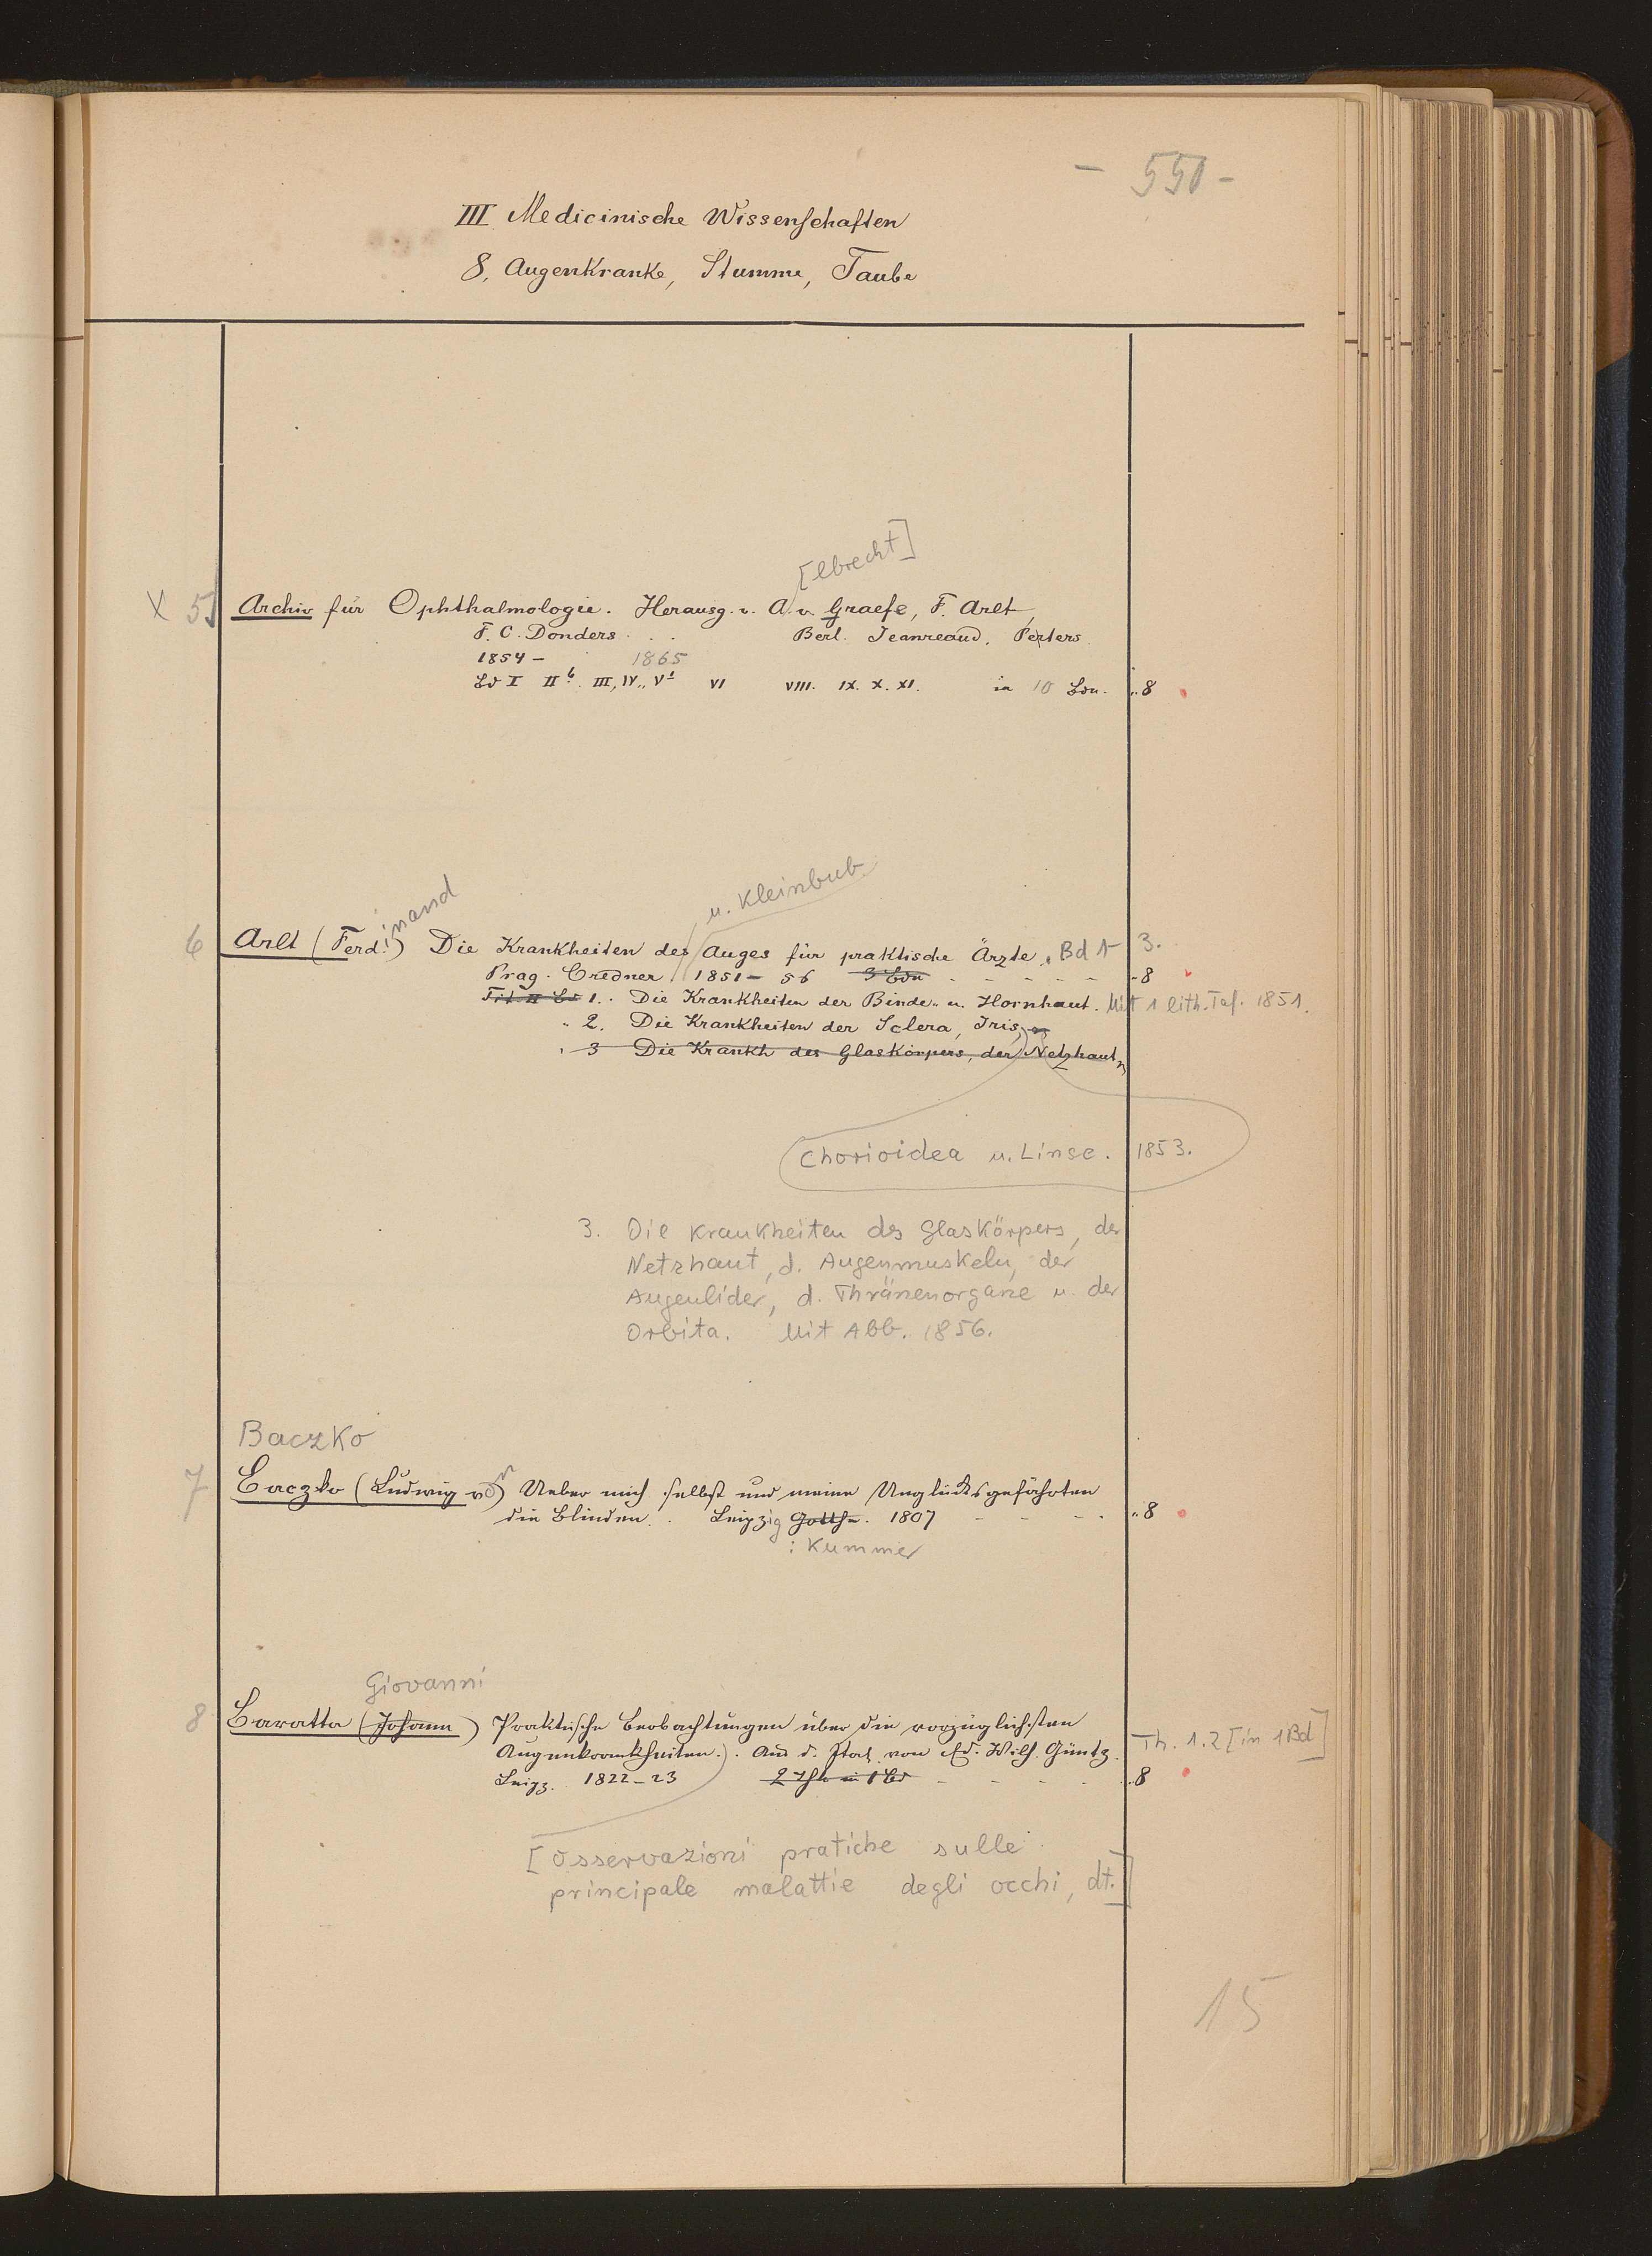 – 550 –
III Medicinische Wissenschaften
8, Augenkranke, Stumme, Taube
[lbrecht]
X 5 Archiv für Ophthalmologie. Herausg. v. A. v. Graefe, F. Arlt,
F. C. Donders . . . Berl. Jeanreaud. Peters
1854 – 1865
Bd I II b. III, IV., V 1 VI VIII. IX. X. XI. in 10 Bdn. „ 8
u. Kleinbub.
6 Arlt (Ferdinand) Die Krankheiten des Auges für praktische Ärzte. Bd 1– 3.
Prag. Credner 1851 – 56 3 Bdn – – – – – „ 8
Tit. II Bd 1. . Die Krankheiten der Binde- u. Hornhaut. Mit 1 lith. Taf. 1851.
„ 2. Die Krankheiten der Sclera, Iris,
„ 3 Die Krankh des Glaskörpers, der Netzhaut
Chorioidea u. Linse. 1853.
3. Die Krankheiten des Glaskörpers, der
Netzhaut, d. Augenmuskeln, der
Augenlider, d. Thränenorgane u. der
Orbita. Mit Abb. 1856.
Baczko
7 Baczko (Ludwig von) Ueber mich selbst und meine Unglücksgefährten
die Blinden. . Leipzig 1807 – – – . „ 8
: Kummer
Giovanni
8 Baratta (Johann) Praktische Beobachtungen über die vorzüglichsten
Augenkrankheiten.). Aus d. Ital. von Ed. Wilh. Güntz. Th. 1.2 [in 1 Bd]
Leipz. 1822–23 2 Thle in 1 Bd – – – – „ 8
[Osservazioni pratiche sulle
principale malattie degli occhi, dt.]
15